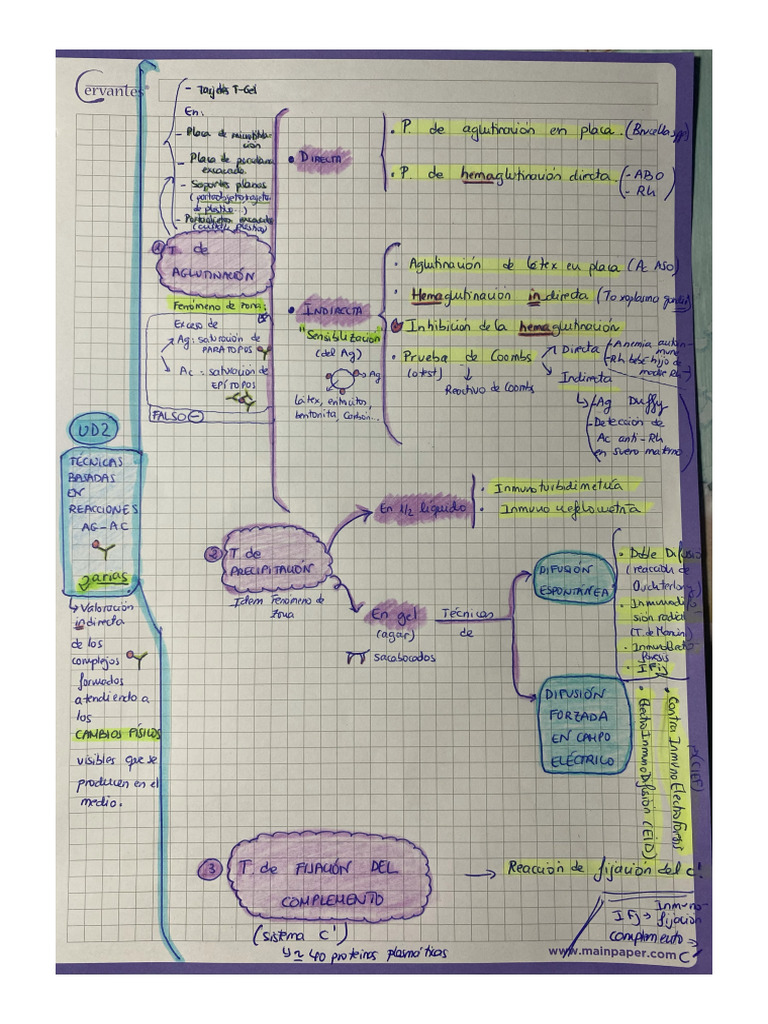 Cervantes
- Tarjetas T-Gel
En:
- Placa de
- Placa de
excavado.
- Soportes planos
(portaobjetos, tarjeta
de plástico...)
① T. de
AGLUTINACIÓN
Fenómeno de zona:
Exceso de
Ag: saturación de
PARÁTOPOS
Ac: saturación de
EPÍTOPOS
FALSO ⊖
• DIRECTA
• P. de aglutinación en placa. (Brucella spp)
• P. de hemaglutinación directa. (- ABO
- Rh)
• INDIRECTA
"Sensibilización"
(del Ag)
Ag
Látex, eritrocitos,
bentonita, carbón...
• Aglutinación de látex en placa (Ac ASO)
• Hemaglutinación indirecta (Toxoplasma gondii)
Inhibición de la hemaglutinación
• Prueba de Coombs
(o test)
Reactivo de Coombs
Directa
- Anemia autoin-
mune
- Rh bebé-hijo de
madre Rh-
Indirecta
- Ag Duffy
- Detección de
Ac anti-Rh
en suero materno
UD2
TÉCNICAS
BASADAS
EN
REACCIONES
AG-AC
2arias
↳ Valoración
indirecta
de los
complejos
formados
atendiendo a
los
CAMBIOS FÍSICOS
visibles que se
producen en el
medio.
② T. de
PRECIPITACIÓN
Idem Fenómeno de
zona
En 1/2 líquido
• Inmunoturbidimetría
• Inmunonefelometría
En gel
(agar)
sacabocados
Técnicas
de
DIFUSIÓN
ESPONTÁNEA
• Doble Difusión
(reacción de
Ouchterlony)
• Inmunodifu-
sión radial
(T. de Mancini)
• Inmunoelectro
foresis
• IFij
DIFUSIÓN
FORZADA
EN CAMPO
ELÉCTRICO
• ElectroInmunoDifusión (EID)
• ContraInmunoElectroForesis
(CIEF)
③ T. de FIJACIÓN DEL
COMPLEMENTO
(sistema C')
↳ ≈ 40 proteínas plasmáticas
→ Reacción de fijación del C'.
IFj → Inmuno-
fijación
complemento ⇒
C'
www.mainpaper.com